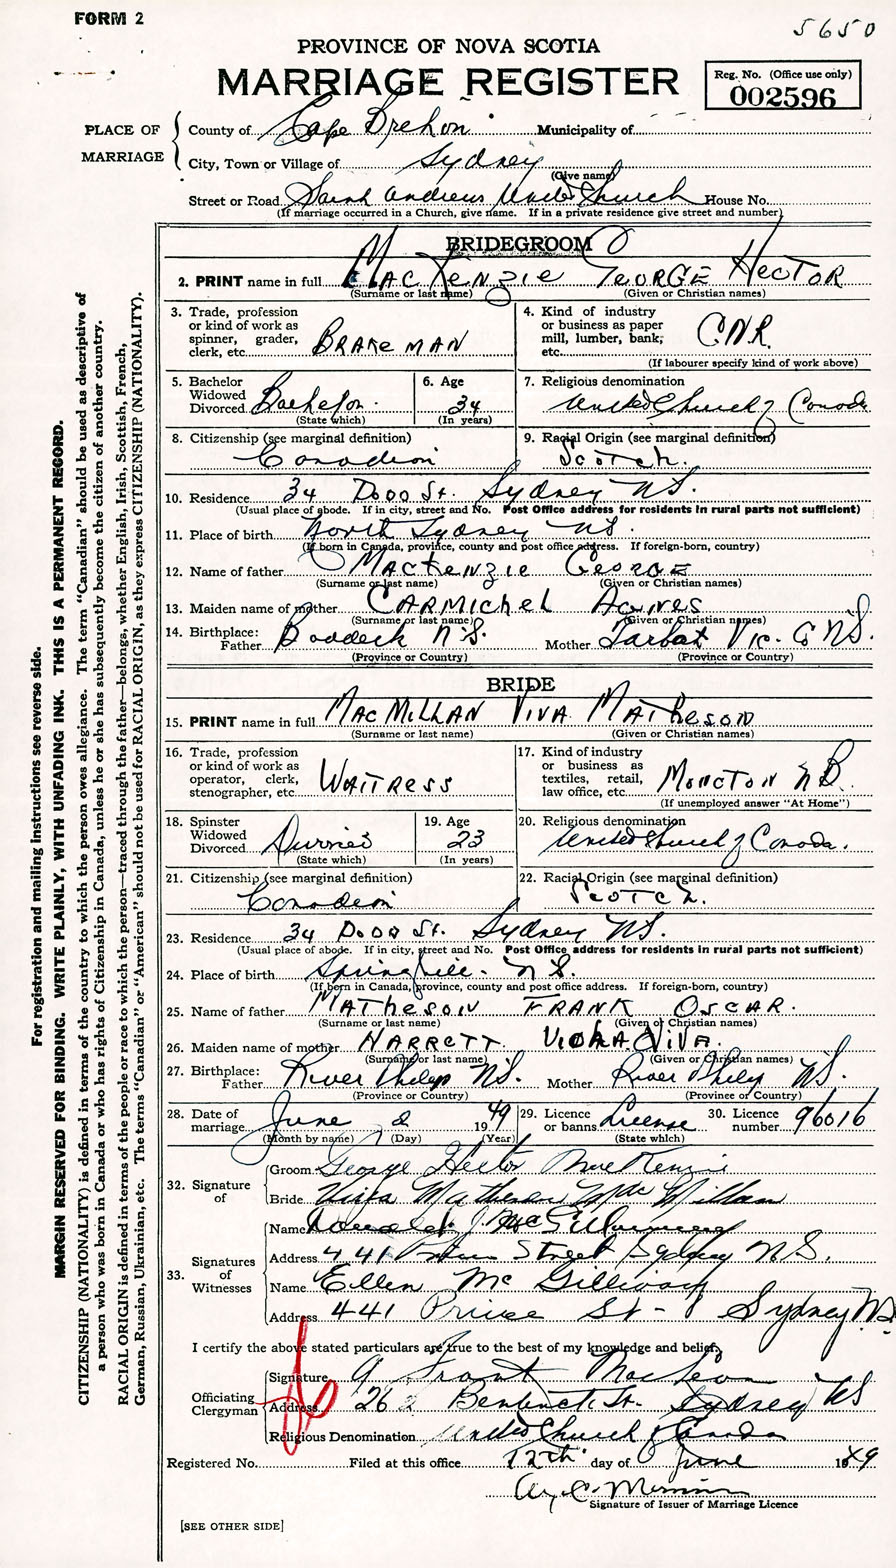 FORM 2
5650
PROVINCE OF NOVA SCOTIA
MARRIAGE REGISTER
Reg. No. (Office use only)
002596
PLACE OF MARRIAGE
County of Cape Breton Municipality of
City, Town or Village of Sydney
(Give name)
Street or Road Saint Andrews United Church House No.
(If marriage occurred in a Church, give name. If in a private residence give street and number)
BRIDEGROOM
2. PRINT name in full MacKenzie George Hector
(Surname or last name) (Given or Christian names)
3. Trade, profession or kind of work as spinner, grader, clerk, etc. BRAKEMAN
4. Kind of industry or business as paper mill, lumber, bank, etc. C.N.R.
(If labourer specify kind of work above)
5. Bachelor Widowed Divorced Bachelor
(State which)
6. Age 34
(In years)
7. Religious denomination United Church of Canada
8. Citizenship (see marginal definition) Canadian
9. Racial Origin (see marginal definition) Scotch.
10. Residence 34 Dodd St. Sydney N.S.
(Usual place of abode. If in city, street and No. Post Office address for residents in rural parts not sufficient)
11. Place of birth North Sydney N.S.
(If born in Canada, province, county and post office address. If foreign-born, country)
12. Name of father MacKenzie George
(Surname or last name) (Given or Christian names)
13. Maiden name of mother CARMICHEL AGNES
(Surname or last name) (Given or Christian names)
14. Birthplace: Father Baddeck N.S. Mother Tarbot Vic. Co N.S.
(Province or Country) (Province or Country)
BRIDE
15. PRINT name in full MacMillan Viva Matheson
(Surname or last name) (Given or Christian names)
16. Trade, profession or kind of work as operator, clerk, stenographer, etc. WAITRESS
17. Kind of industry or business as textiles, retail, law office, etc. MONCTON N.B.
(If unemployed answer "At Home")
18. Spinster Widowed Divorced
(State which)
19. Age 23
(In years)
20. Religious denomination United Church of Canada.
21. Citizenship (see marginal definition) Canadian
22. Racial Origin (see marginal definition) Scotch.
23. Residence 34 Dodd St. Sydney N.S.
(Usual place of abode. If in city, street and No. Post Office address for residents in rural parts not sufficient)
24. Place of birth Springhill N.S.
(If born in Canada, province, county and post office address. If foreign-born, country)
25. Name of father Matheson FRANK OSCAR.
(Surname or last name) (Given or Christian names)
26. Maiden name of mother HARRETT VIOLA VIVA.
(Surname or last name) (Given or Christian names)
27. Birthplace: Father River Philip N.S. Mother River Philip N.S.
(Province or Country) (Province or Country)
28. Date of marriage June 2 1949
(Month by name) (Day) (Year)
29. Licence or banns License
(State which)
30. Licence number 96016
32. Signature of
Groom George Hector MacKenzie
Bride Viva Matheson MacMillan
33. Signatures of Witnesses
Name Donald J. McGillivray
Address 441 Prince Street Sydney N.S.
Name Ellen McGillivary
Address 441 Prince St - Sydney N.S
I certify the above stated particulars are true to the best of my knowledge and belief,
Officiating Clergyman
Signature A Frank MacLean
Address 262 Bentinck St. Sydney NS
Religious Denomination United Church of Canada
Registered No. Filed at this office 12th day of June 1949
Signature of Issuer of Marriage Licence
[SEE OTHER SIDE]
For registration and mailing instructions see reverse side.
MARGIN RESERVED FOR BINDING. WRITE PLAINLY, WITH UNFADING INK. THIS IS A PERMANENT RECORD.
CITIZENSHIP (NATIONALITY) is defined in terms of the country to which the person owes allegiance. The term "Canadian" should be used as descriptive of
a person who was born in Canada or who has rights of Citizenship in Canada, unless he or she has subsequently become the citizen of another country.
RACIAL ORIGIN is defined in terms of the people or race to which the person—traced through the father—belongs, whether English, Irish, Scottish, French,
German, Russian, Ukrainian, etc. The terms "Canadian" or "American" should not be used for RACIAL ORIGIN, as they express CITIZENSHIP (NATIONALITY).